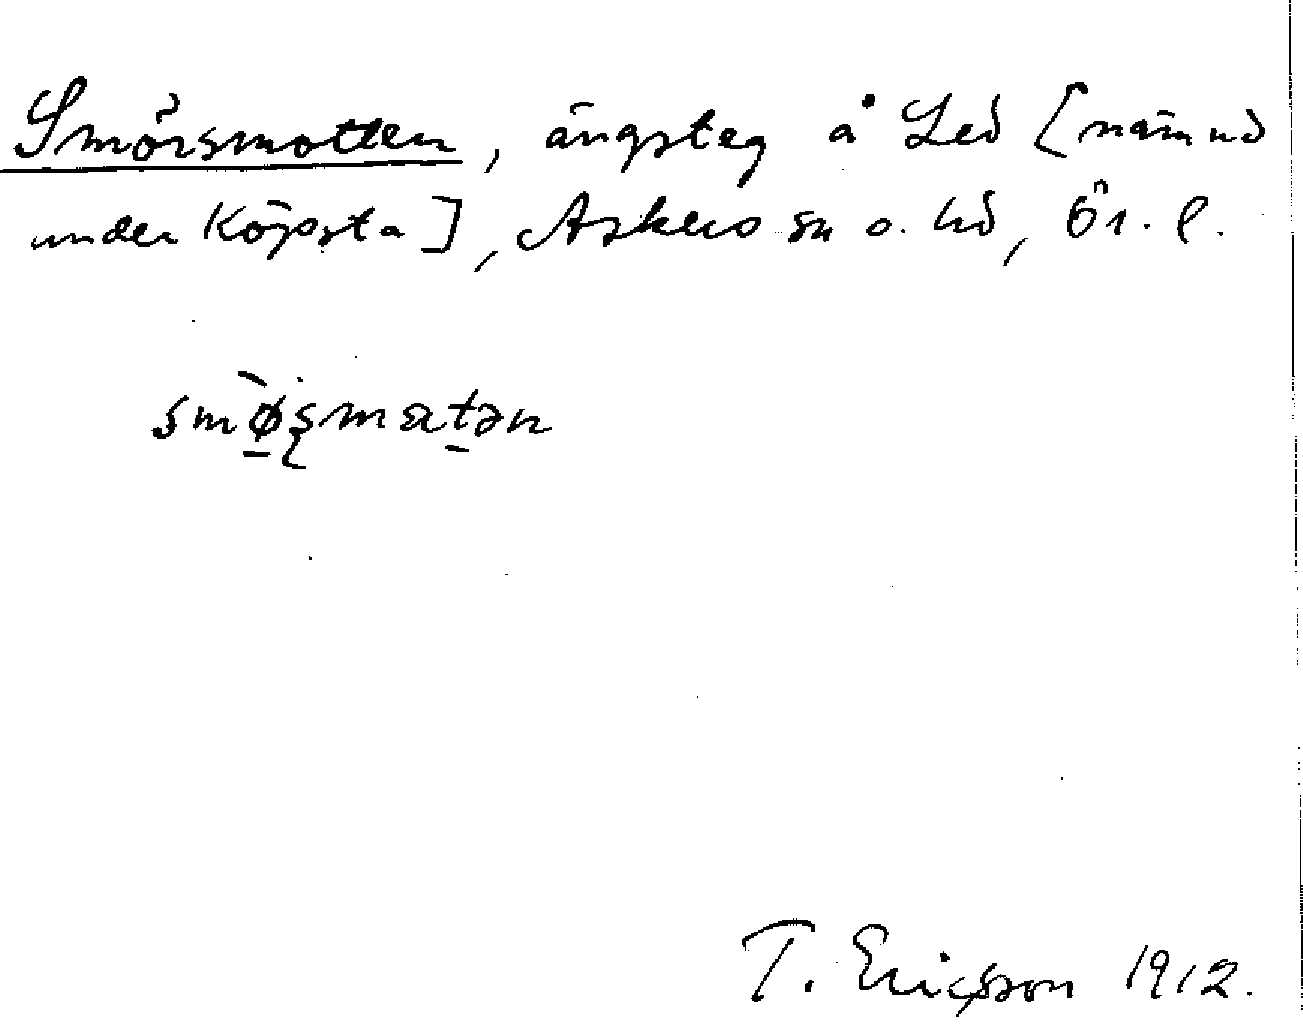 Smörsmotten, ängsteg å Led [nämnd
under Köpsta], Askers sn o. hd, Ör. l.
smø̀ʂmatən
T. Ericsson 1912.